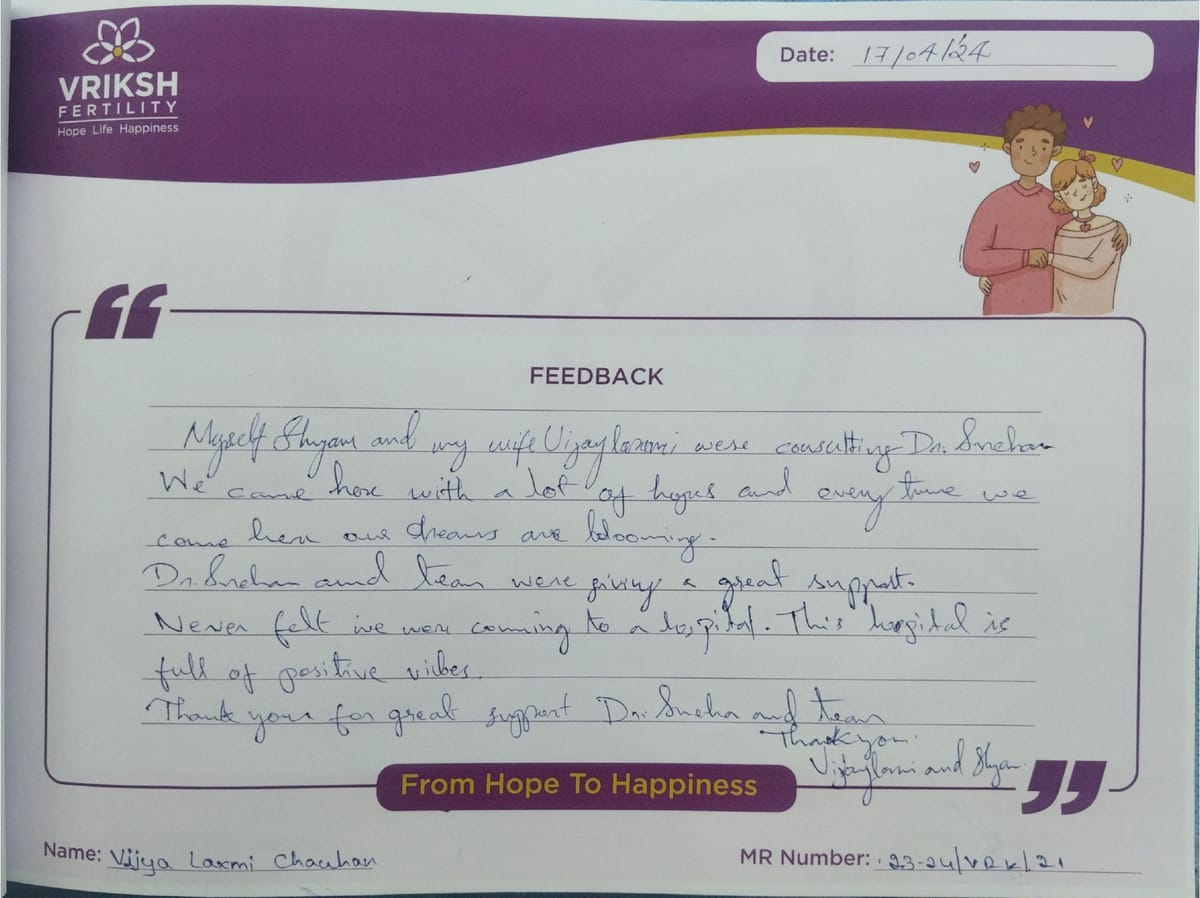 VRIKSH
FERTILITY
Hope Life Happiness
Date: 17/04/24
FEEDBACK
Myself Shyam and my wife Vijaylaxmi were consulting Dr. Sneha
We came here with a lot of hopes and every time we
come here our dreams are blooming.
Dr. Sneha and team were giving a great support.
Never felt we were coming to a hospital. This hospital is
full of positive vibes.
Thank your for great support Dr. Sneha and team
Thank you.
Vijaylaxmi and Shyam
From Hope To Happiness
Name: Vijya Laxmi Chauhan
MR Number: 23-24/VRK/21